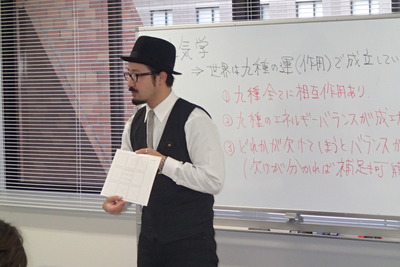 気学
→ 世界は九種の運(作用)で成立してい
① 九種全てに相互作用あり
② 九種のエネルギーバランスが成立
③ どれかが欠けてしまうとバランスが
(欠けが分かれば補足可能